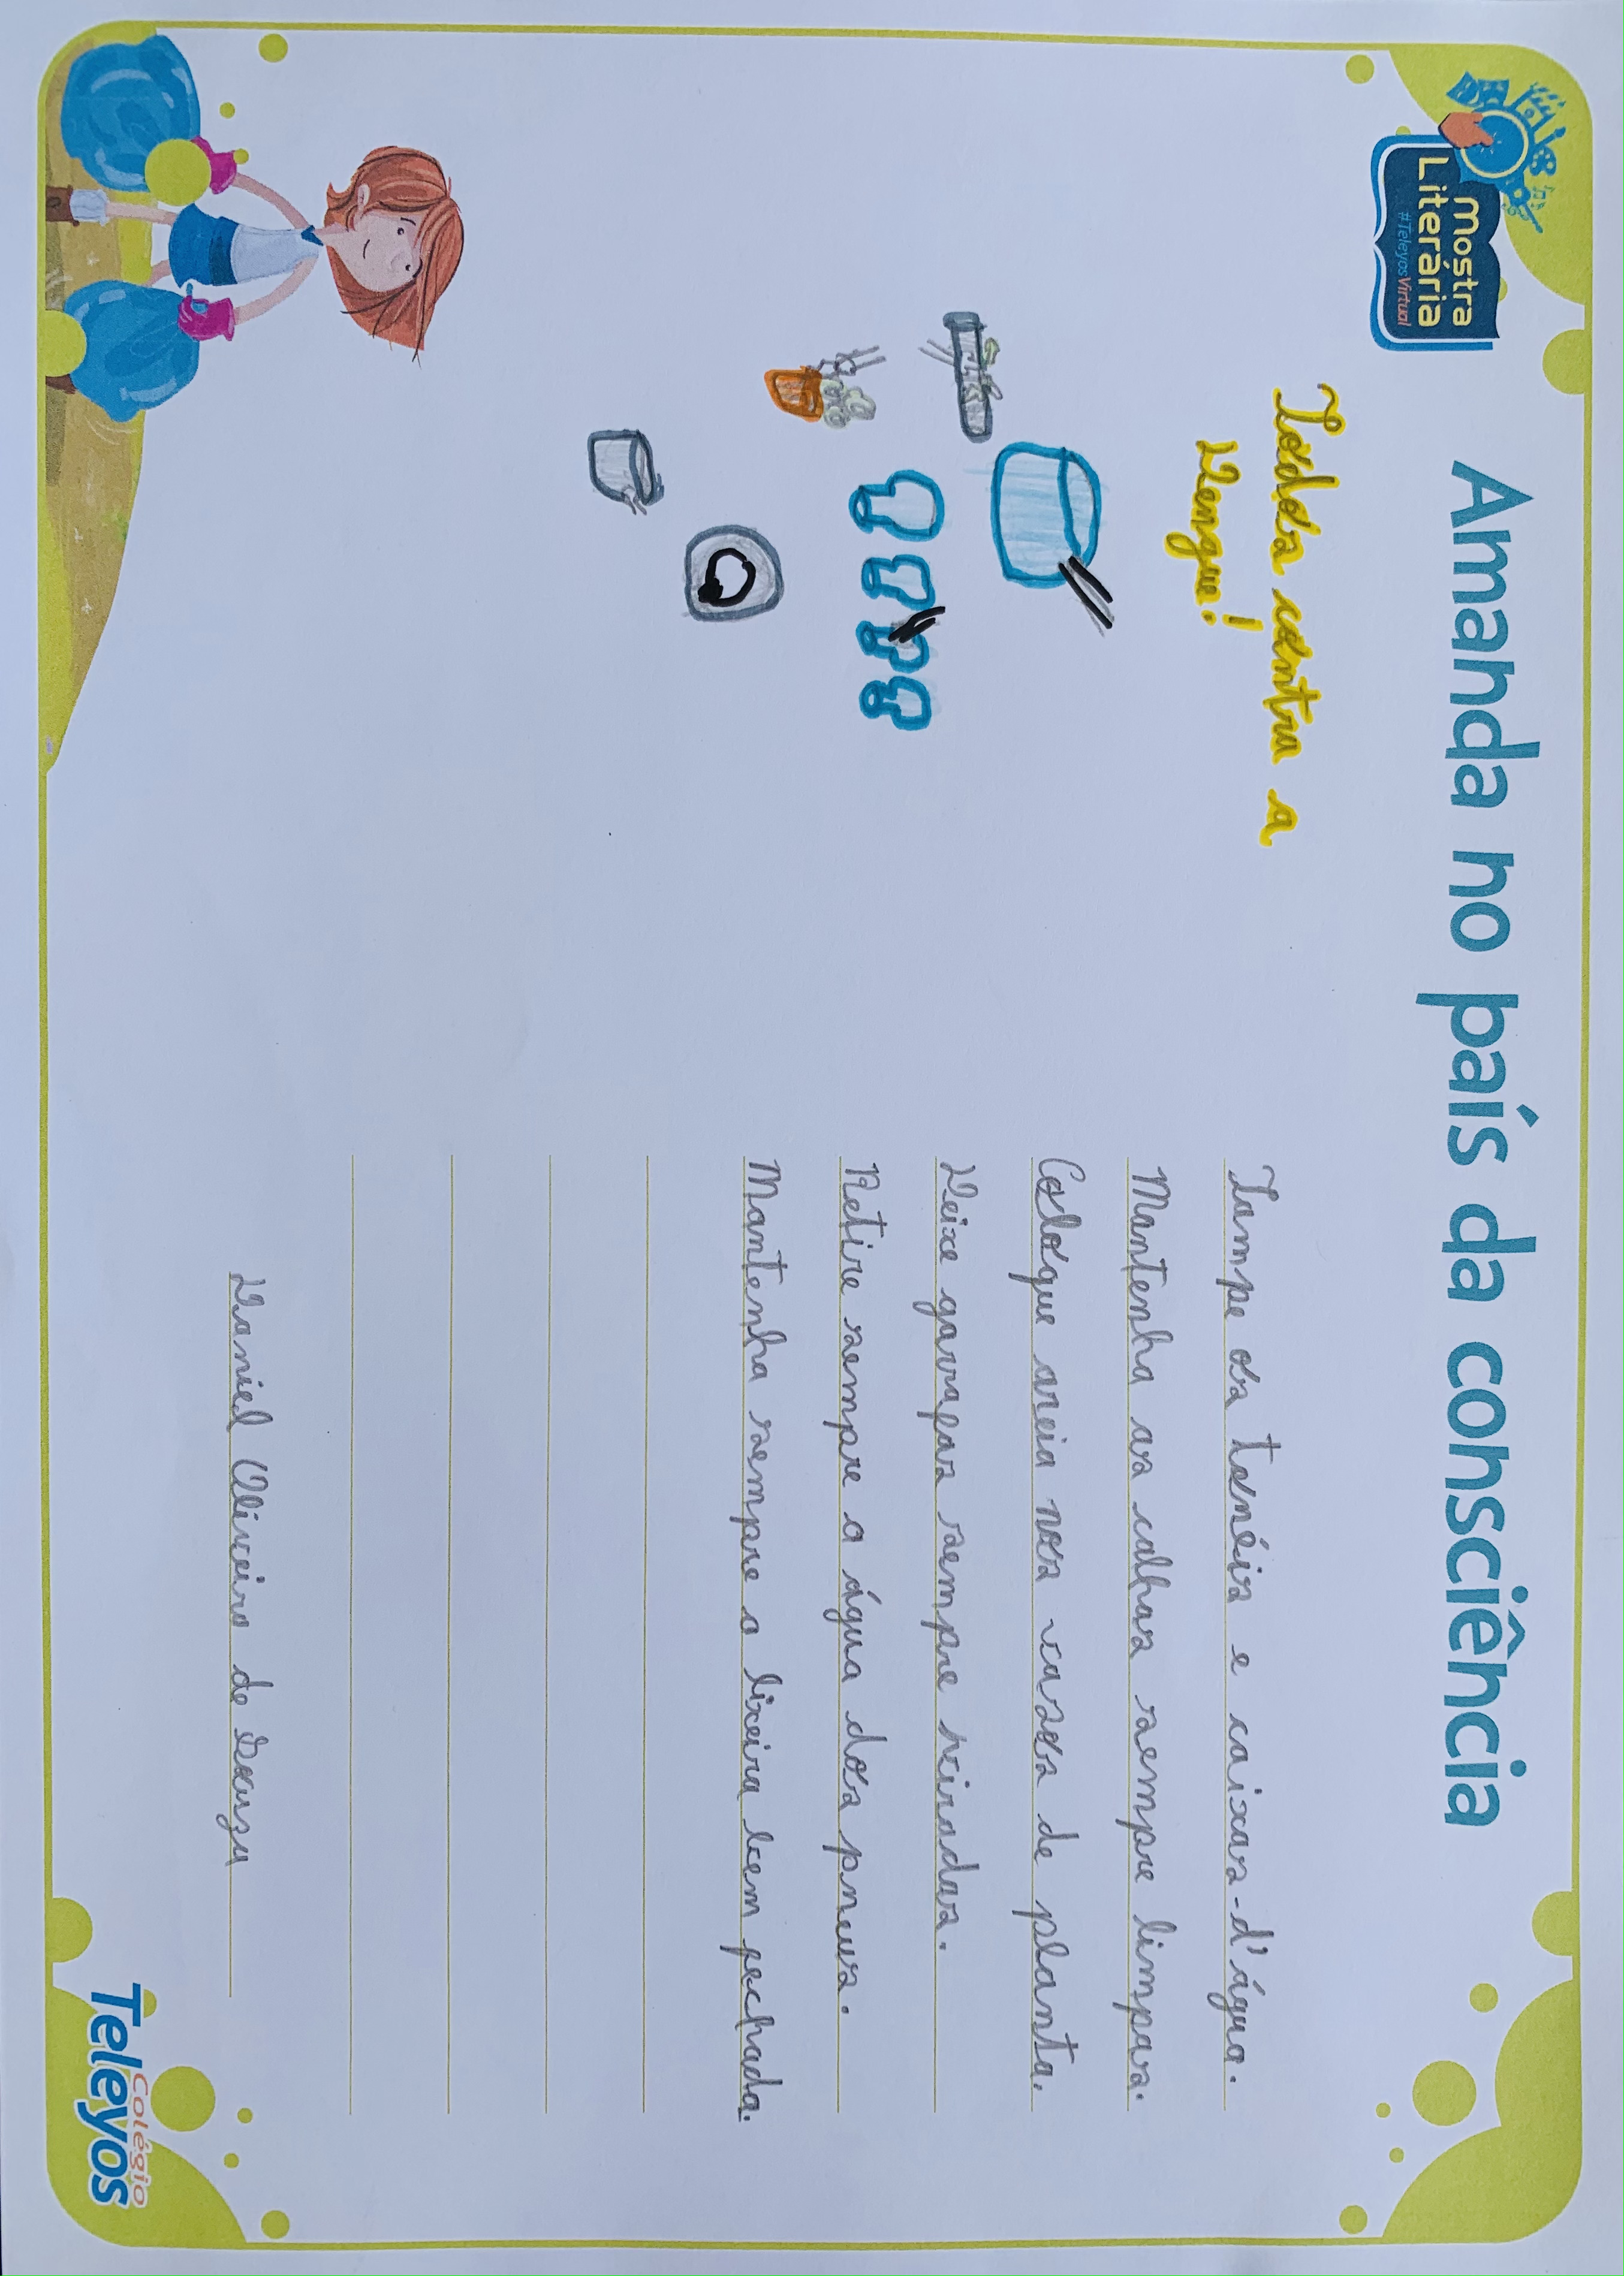 Mostra
Literária
#TeleyosVirtual
Amanda no país da consciência
Todos contra a
Dengue!
Tampe os tonéis e caixas-d'água.
Mantenha as calhas sempre limpas.
Coloque areia nos vasos de planta.
Deixe garrafas sempre viradas.
Retire sempre a água dos pneus.
Mantenha sempre a lixeira bem fechada.
Daniel Oliveira de Souza
Colégio
Teleyos